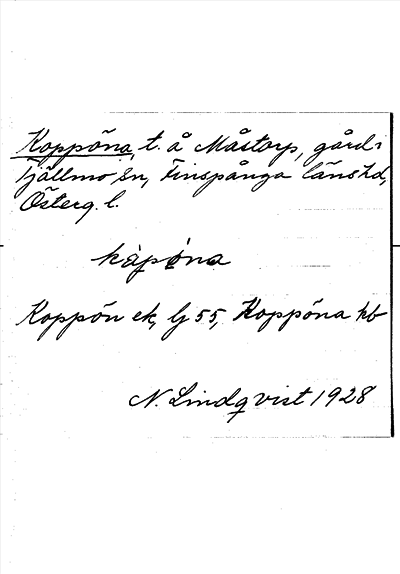 Koppöna, t. å Måstorp, gård i
Tjällmo sn, Finspånga länshd,
Österg. l.
kåpøna
Koppön ek, Gj 55, Koppöna hb
N. Lindqvist 1928